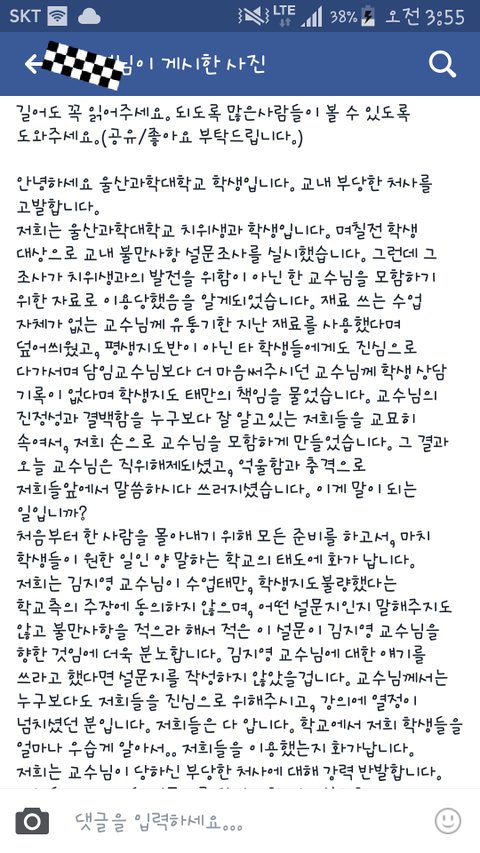 SKT LTE 38% 오전 3:55
님이 게시한 사진
길어도 꼭 읽어주세요. 되도록 많은사람들이 볼 수 있도록
도와주세요.(공유/좋아요 부탁드립니다.)
안녕하세요 울산과학대학교 학생입니다. 교내 부당한 처사를
고발합니다.
저희는 울산과학대학교 치위생과 학생입니다. 며칠전 학생
대상으로 교내 불만사항 설문조사를 실시했습니다. 그런데 그
조사가 치위생과의 발전을 위함이 아닌 한 교수님을 모함하기
위한 자료로 이용당했음을 알게되었습니다. 재료 쓰는 수업
자체가 없는 교수님께 유통기한 지난 재료를 사용했다며
덮어씌웠고, 평생지도반이 아닌 타 학생들에게도 진심으로
다가서며 담임교수님보다 더 마음써주시던 교수님께 학생 상담
기록이 없다며 학생지도 태만의 책임을 물었습니다. 교수님의
진정성과 결백함을 누구보다 잘 알고있는 저희들을 교묘히
속여서, 저희 손으로 교수님을 모함하게 만들었습니다. 그 결과
오늘 교수님은 직위해제되셨고, 억울함과 충격으로
저희들앞에서 말씀하시다 쓰러지셨습니다. 이게 말이 되는
일입니까?
처음부터 한 사람을 몰아내기 위해 모든 준비를 하고서, 마치
학생들이 원한 일인 양 말하는 학교의 태도에 화가 납니다.
저희는 김지영 교수님이 수업태만, 학생지도불량했다는
학교측의 주장에 동의하지 않으며, 어떤 설문지인지 말해주지도
않고 불만사항을 적으라 해서 적은 이 설문이 김지영 교수님을
향한 것임에 더욱 분노합니다. 김지영 교수님에 대한 얘기를
쓰라고 했다면 설문지를 작성하지 않았을겁니다. 교수님께서는
누구보다도 저희들을 진심으로 위해주시고, 강의에 열정이
넘치셨던 분입니다. 저희들은 다 압니다. 학교에서 저희 학생들을
얼마나 우습게 알아서.. 저희들을 이용했는지 화가납니다.
저희는 교수님이 당하신 부당한 처사에 대해 강력 반발합니다.
댓글을 입력하세요...